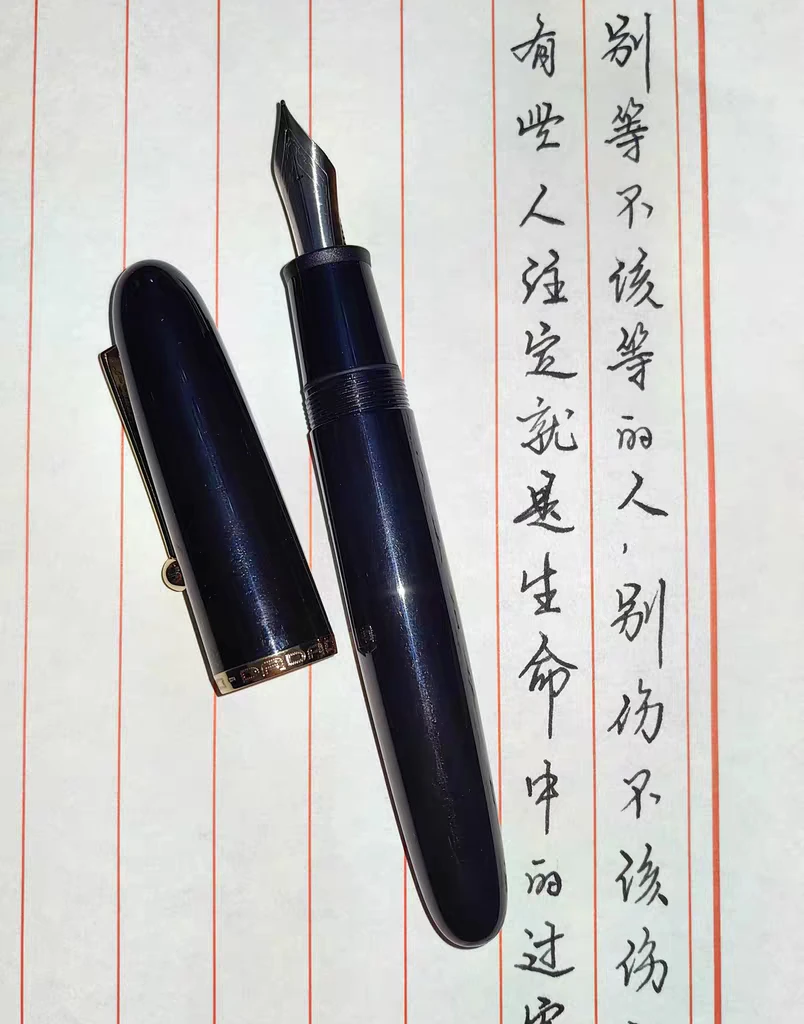 别等不该等的人，别伤不该伤
有些人注定就是生命中的过
DADA